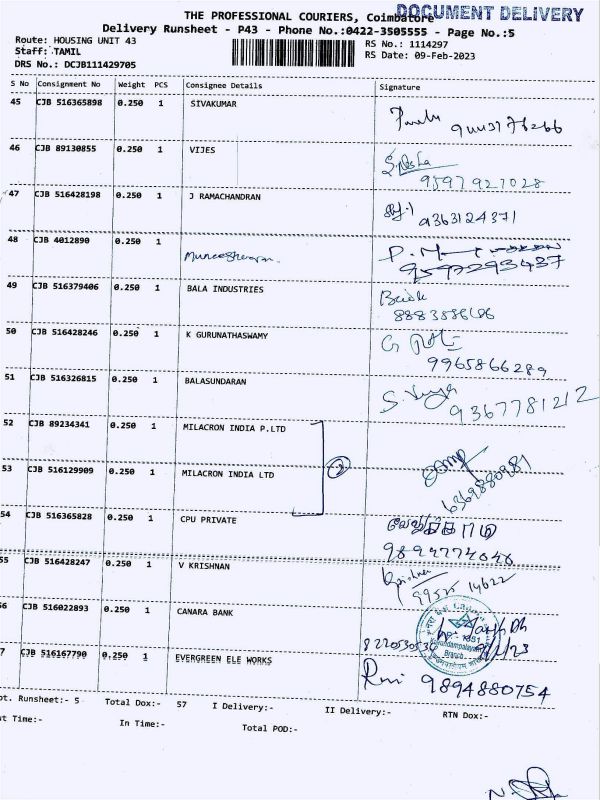 THE PROFESSIONAL COURIERS, Coimbatore
DOCUMENT DELIVERY
Delivery Runsheet - P43 - Phone No.:0422-3505555 - Page No.:5
Route: HOUSING UNIT 43
Staff: TAMIL
DRS No.: DCJB111429705
RS No.: 1114297
RS Date: 09-Feb-2023
S No Consignment No Weight PCS Consignee Details Signature
45 CJB 516365898 0.250 1 SIVAKUMAR
46 CJB 89130855 0.250 1 VIJES
9597927028
47 CJB 516428198 0.250 1 J RAMACHANDRAN
9363124371
48 CJB 4012890 0.250 1
9597293437
49 CJB 516379406 0.250 1 BALA INDUSTRIES
50 CJB 516428246 0.250 1 K GURUNATHASWAMY
9965866289
51 CJB 516326815 0.250 1 BALASUNDARAN
9367781212
52 CJB 89234341 0.250 1 MILACRON INDIA P.LTD
2
53 CJB 516129909 0.250 1 MILACRON INDIA LTD
6369880981
54 CJB 516365828 0.250 1 CPU PRIVATE
55 CJB 516428247 0.250 1 V KRISHNAN
Krishnan
99525 14622
56 CJB 516022893 0.250 1 CANARA BANK
7 CJB 516167790 0.250 1 EVERGREEN ELE WORKS
9894880754
ot. Runsheet:- 5 Total Dox:- 57 I Delivery:- II Delivery:- RTN Dox:-
ut Time:- In Time:- Total POD:-